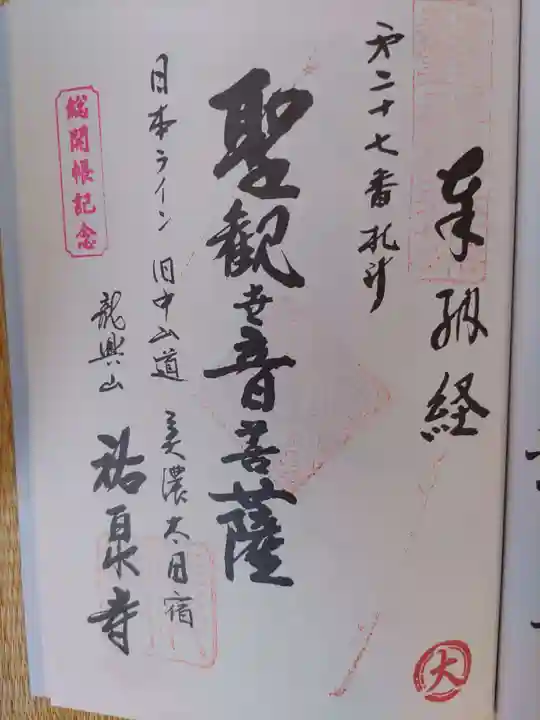 奉納経
第二十七番札所
聖観世音菩薩
日本ライン 旧中山道 美濃太田宿
龍興山
祐泉寺
総開帳記念
大